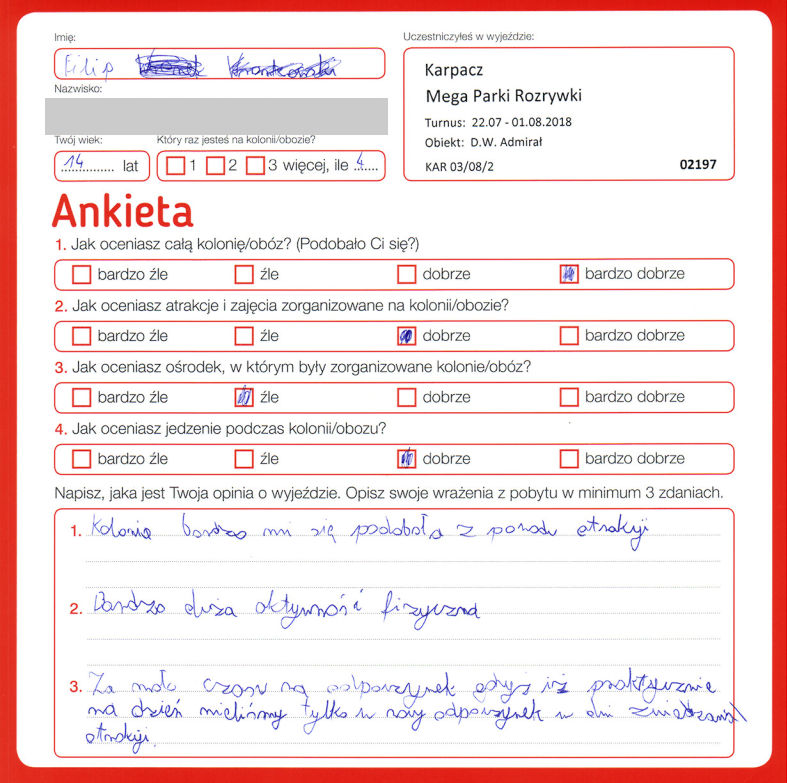 Imię:
Filip
Nazwisko:
Twój wiek:
14 lat
Który raz jesteś na kolonii/obozie?
1 2 3 więcej, ile 4
Uczestniczyłeś w wyjeździe:
Karpacz
Mega Parki Rozrywki
Turnus: 22.07 - 01.08.2018
Obiekt: D.W. Admirał
KAR 03/08/2 02197
Ankieta
1. Jak oceniasz całą kolonię/obóz? (Podobało Ci się?)
bardzo źle źle dobrze bardzo dobrze
2. Jak oceniasz atrakcje i zajęcia zorganizowane na kolonii/obozie?
bardzo źle źle dobrze bardzo dobrze
3. Jak oceniasz ośrodek, w którym były zorganizowane kolonie/obóz?
bardzo źle źle dobrze bardzo dobrze
4. Jak oceniasz jedzenie podczas kolonii/obozu?
bardzo źle źle dobrze bardzo dobrze
Napisz, jaka jest Twoja opinia o wyjeździe. Opisz swoje wrażenia z pobytu w minimum 3 zdaniach.
1. Kolonia bardzo mi się podobała z porodu atrakcji
2. Bardzo duża aktywność fizyczna
3. Za mało czasu na odpoczynek gdyż iż praktycznie
na dzień mieliśmy tylko odpoczynek w dni
atrakcji.